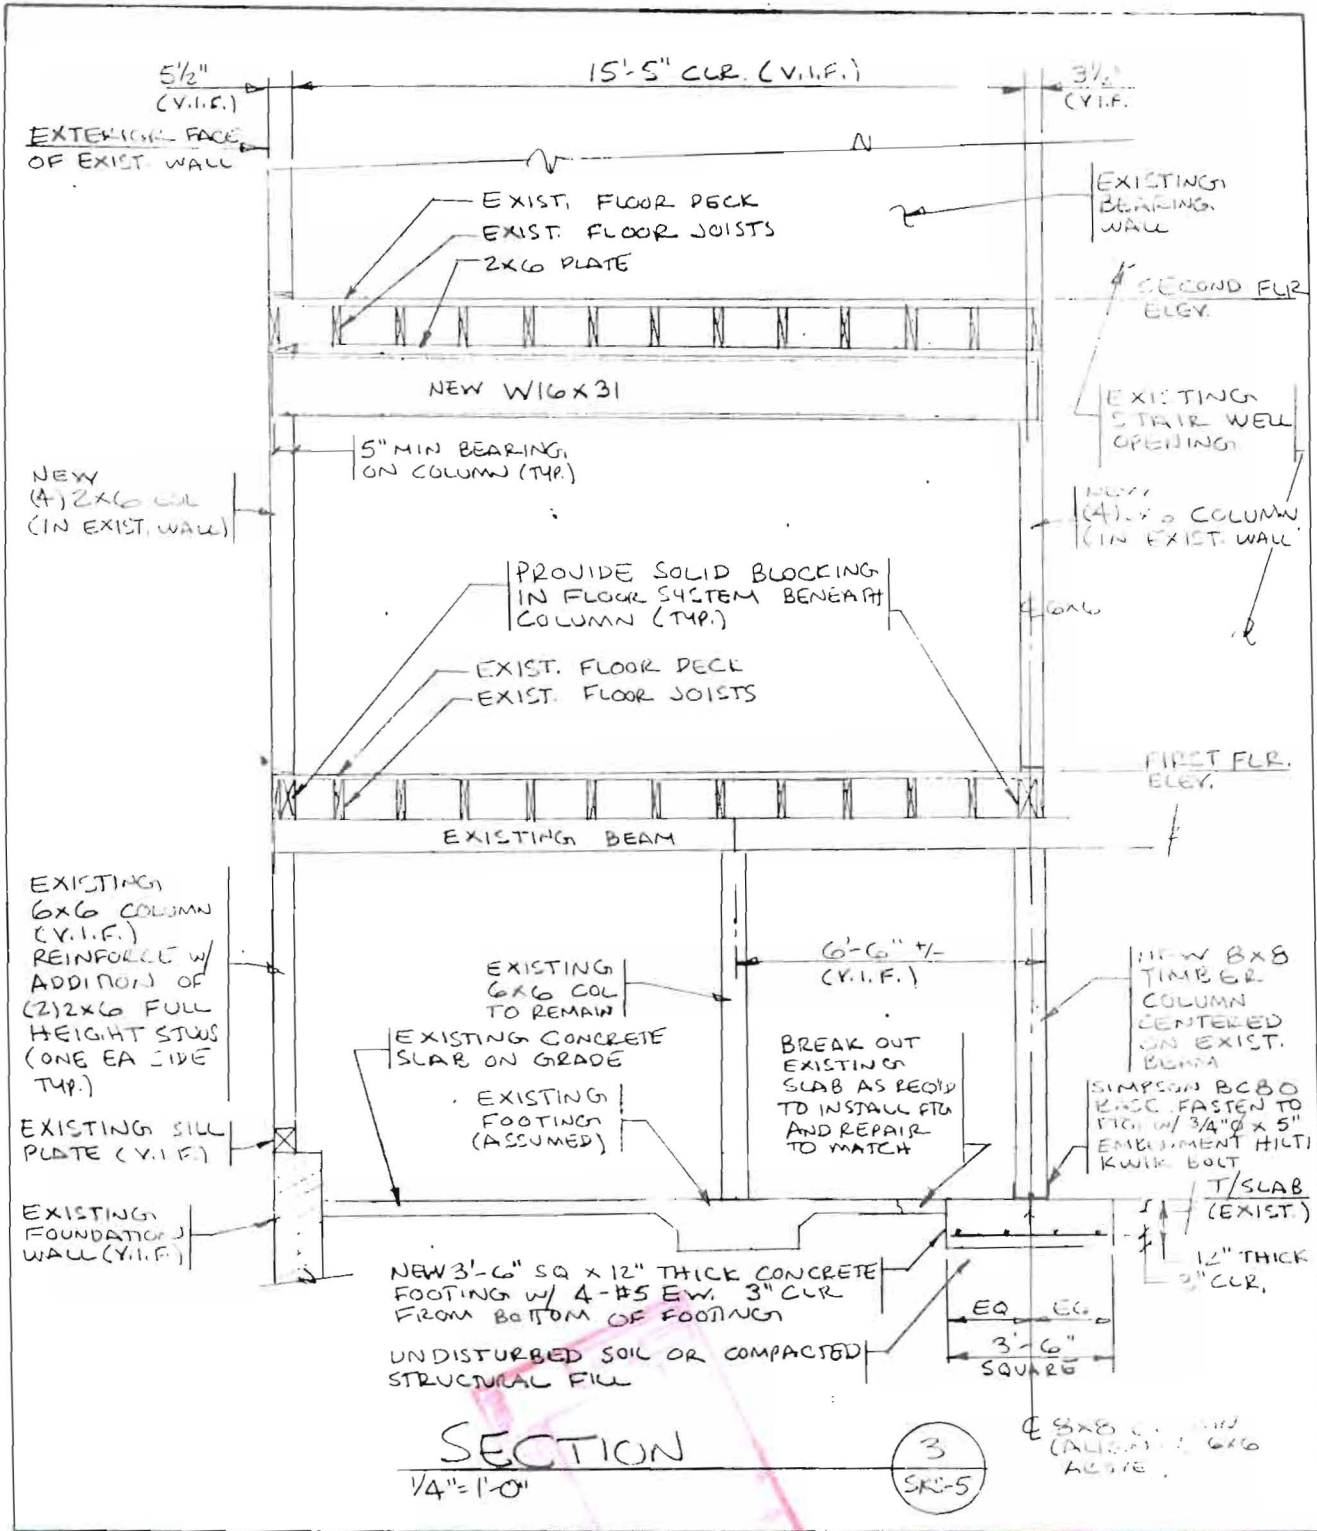 5½"
(V.I.F.)
15'-5" CLR. (V.I.F.)
3½"
(V.I.F.
EXTERIOR FACE
OF EXIST. WALL
EXIST. FLOOR DECK
EXIST. FLOOR JOISTS
2X6 PLATE
EXISTING
BEARING
WALL
SECOND FLR
ELEV.
NEW W16X31
5" MIN BEARING
ON COLUMN (TYP.)
EXISTING
STAIR WELL
OPENING
NEW
(4) 2X6 COL
(IN EXIST. WALL)
NEW
(4) COLUMN
(IN EXIST. WALL
PROVIDE SOLID BLOCKING
IN FLOOR SYSTEM BENEATH
COLUMN (TYP.)
℄ 6X6
EXIST. FLOOR DECK
EXIST. FLOOR JOISTS
FIRST FLR.
ELEV.
EXISTING BEAM
EXISTING
6X6 COLUMN
(V.I.F.)
REINFORCE W/
ADDITION OF
(2) 2X6 FULL
HEIGHT STUDS
(ONE EA SIDE
TYP.)
EXISTING
6X6 COL
TO REMAIN
6'-6" +/-
(V.I.F.)
NEW 8X8
TIMBER
COLUMN
CENTERED
ON EXIST.
BEAM
EXISTING CONCRETE
SLAB ON GRADE
EXISTING
FOOTING
(ASSUMED)
BREAK OUT
EXISTING
SLAB AS REQ'D
TO INSTALL FTG
AND REPAIR
TO MATCH
SIMPSON BC80
BASE. FASTEN TO
FTG W/ 3/4"Ø X 5"
EMBEDMENT HILTI
KWIK BOLT
EXISTING SILL
PLATE (V.I.F.)
T/SLAB
(EXIST.)
EXISTING
FOUNDATION
WALL (V.I.F.)
12" THICK
3" CLR.
NEW 3'-6" SQ X 12" THICK CONCRETE
FOOTING W/ 4-#5 E.W. 3" CLR
FROM BOTTOM OF FOOTING
EQ EQ
3'-6"
SQUARE
UNDISTURBED SOIL OR COMPACTED
STRUCTURAL FILL
℄ 8X8
(ALIGN 6X6
ABOVE
SECTION
1/4"=1'-0"
3
SK-5